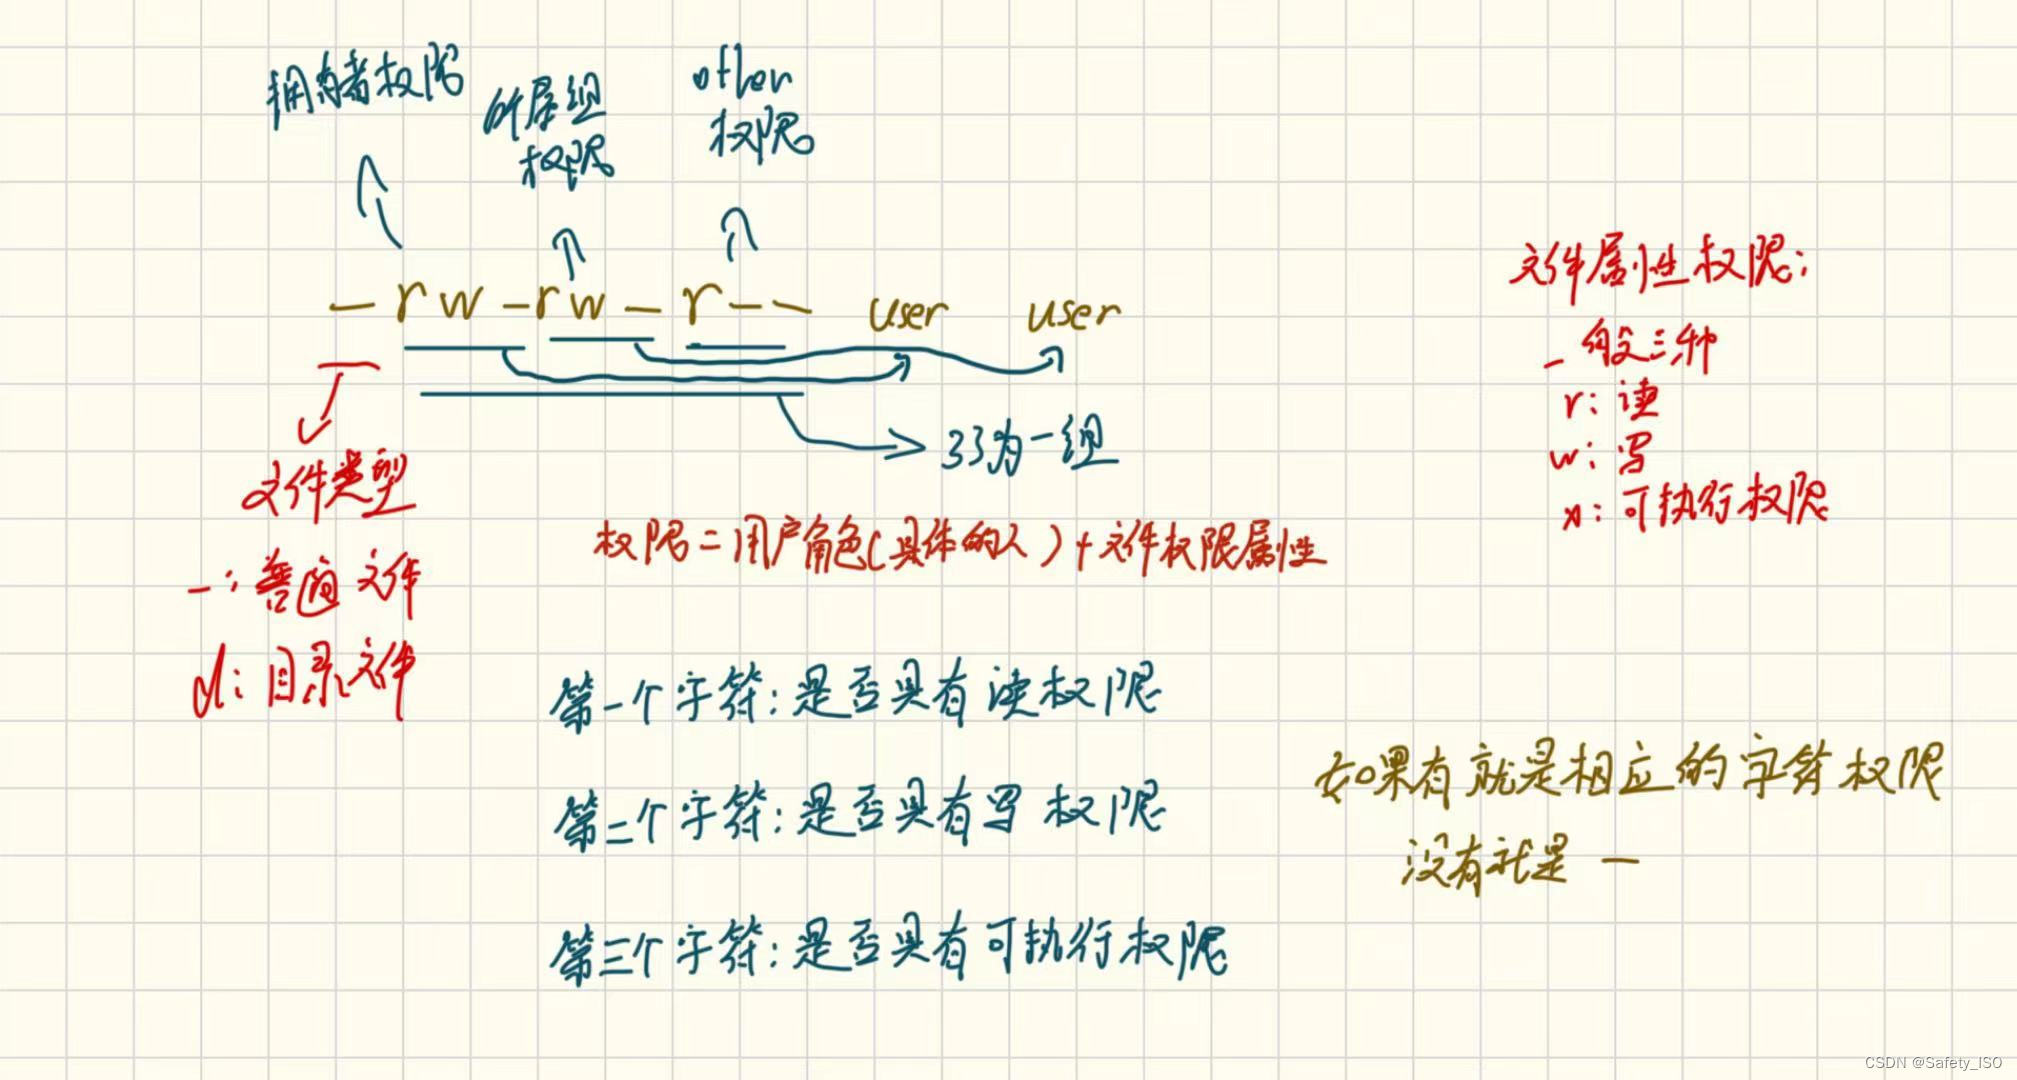 拥有者权限
所属组
权限
other
权限
-rw-rw-r-- user user
33为一组
文件类型
-: 普通文件
d: 目录文件
权限=用户角色(具体的人)+文件权限属性
文件属性权限:
一般三种
r: 读
w: 写
x: 可执行权限
第一个字符:是否具有读权限
第二个字符:是否具有写权限
第三个字符:是否具有可执行权限
如果有就是相应的字符权限
没有就是 -
CSDN @Safety_ISO